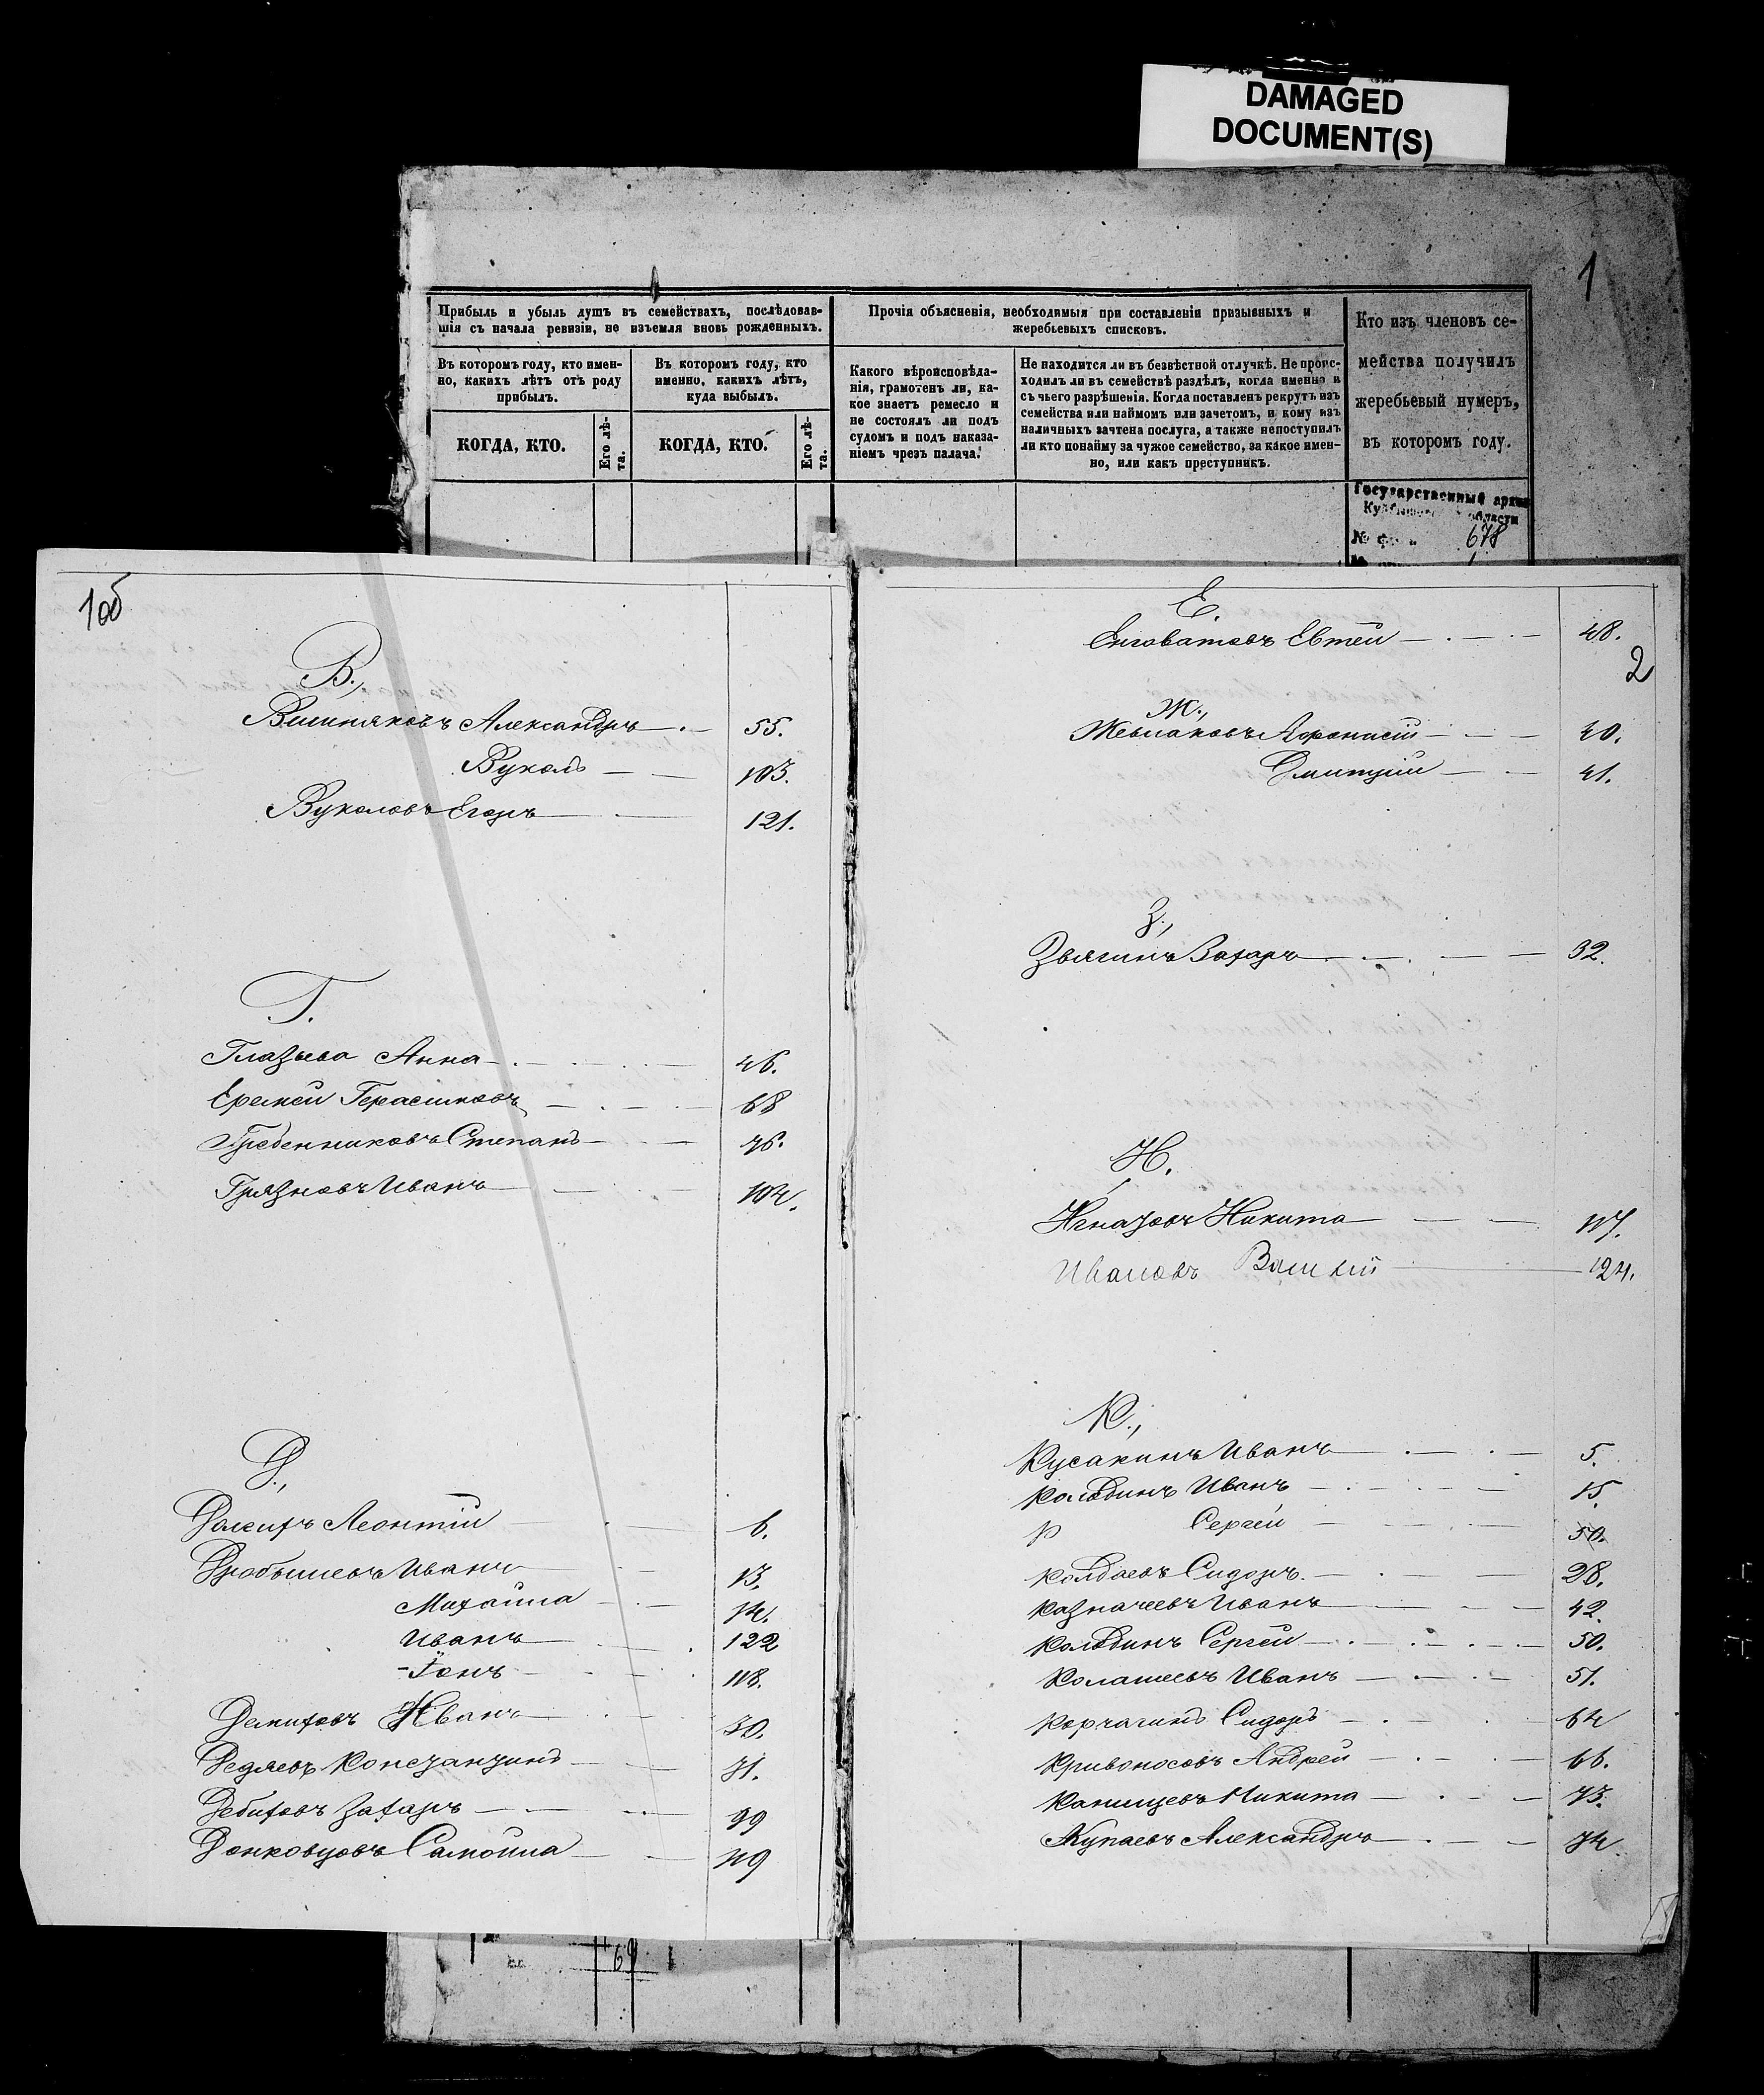 DAMAGED
DOCUMENT(S)
1
Прибыль и убыль душъ въ семействахъ, послѣдовав-
шія съ начала ревизіи, не изъемля вновь рожденныхъ.
Въ которомъ году, кто имен-
но, какихъ лѣтъ отъ роду
прибылъ.
Въ которомъ году, кто
именно, какихъ лѣтъ,
куда выбылъ.
КОГДА, КТО.
Его лѣ-
та.
КОГДА, КТО.
Его лѣ-
та.
Прочія объясненія, необходимыя при составленіи призывныхъ и
жеребьевыхъ списковъ.
Какого вѣроисповѣда-
нія, грамотенъ ли, ка-
кое знаетъ ремесло и
не состоялъ ли подъ
судомъ и подъ наказа-
ніемъ чрезъ палача.
Не находится ли въ безвѣстной отлучкѣ. Не проис-
ходилъ ли въ семействѣ раздѣлъ, когда именно и
съ чьего разрѣшенія. Когда поставленъ рекрутъ изъ
семейства или наймомъ или зачетомъ, и кому изъ
наличныхъ зачтена послуга, а также непоступилъ
ли кто понайму за чужое семейство, за какое имен-
но, или какъ преступникъ.
Кто изъ членовъ се-
мейства получилъ
жеребьевый нумеръ,
въ которомъ году.
Государственный архив
области
№ 678
1об
В.,
Вишняковъ Александръ 55.
Вуколъ 103.
Вуколовъ Егоръ 121.
Г.
Глазьева Анна 46.
Еремей Герасимовъ 68
Гребенниковъ Степанъ 76.
Грязновъ Иванъ 104.
Д.,
Леонтій 6.
Дробышевъ Иванъ 13.
Михайла 14.
Иванъ 122
Іонъ 118.
Демиховъ Иванъ 30.
Дедяевъ Констанчинъ 71.
Дебиховъ Захаръ 99
Донковцовъ Самойла 119
Е.
Енговатовъ Евтей 48.
2
Ж.,
Афонасій 40.
Дмитрій 41.
З.,
Звягинъ Захаръ 32.
И.
Игнатовъ Никита 117.
Ивановъ 124.
К.,
Кусакинъ Иванъ 5.
Колобинъ Иванъ 15.
Сергей 50.
Колбаевъ Сидоръ 28.
Казначеевъ Иванъ 42.
Колобинъ Сергей 50.
Колашевъ Иванъ 51.
Корчагинъ Сидоръ 64
Кривоносовъ Андрей 66.
Канищевъ Никита 73.
Купаевъ Александръ 74.
69